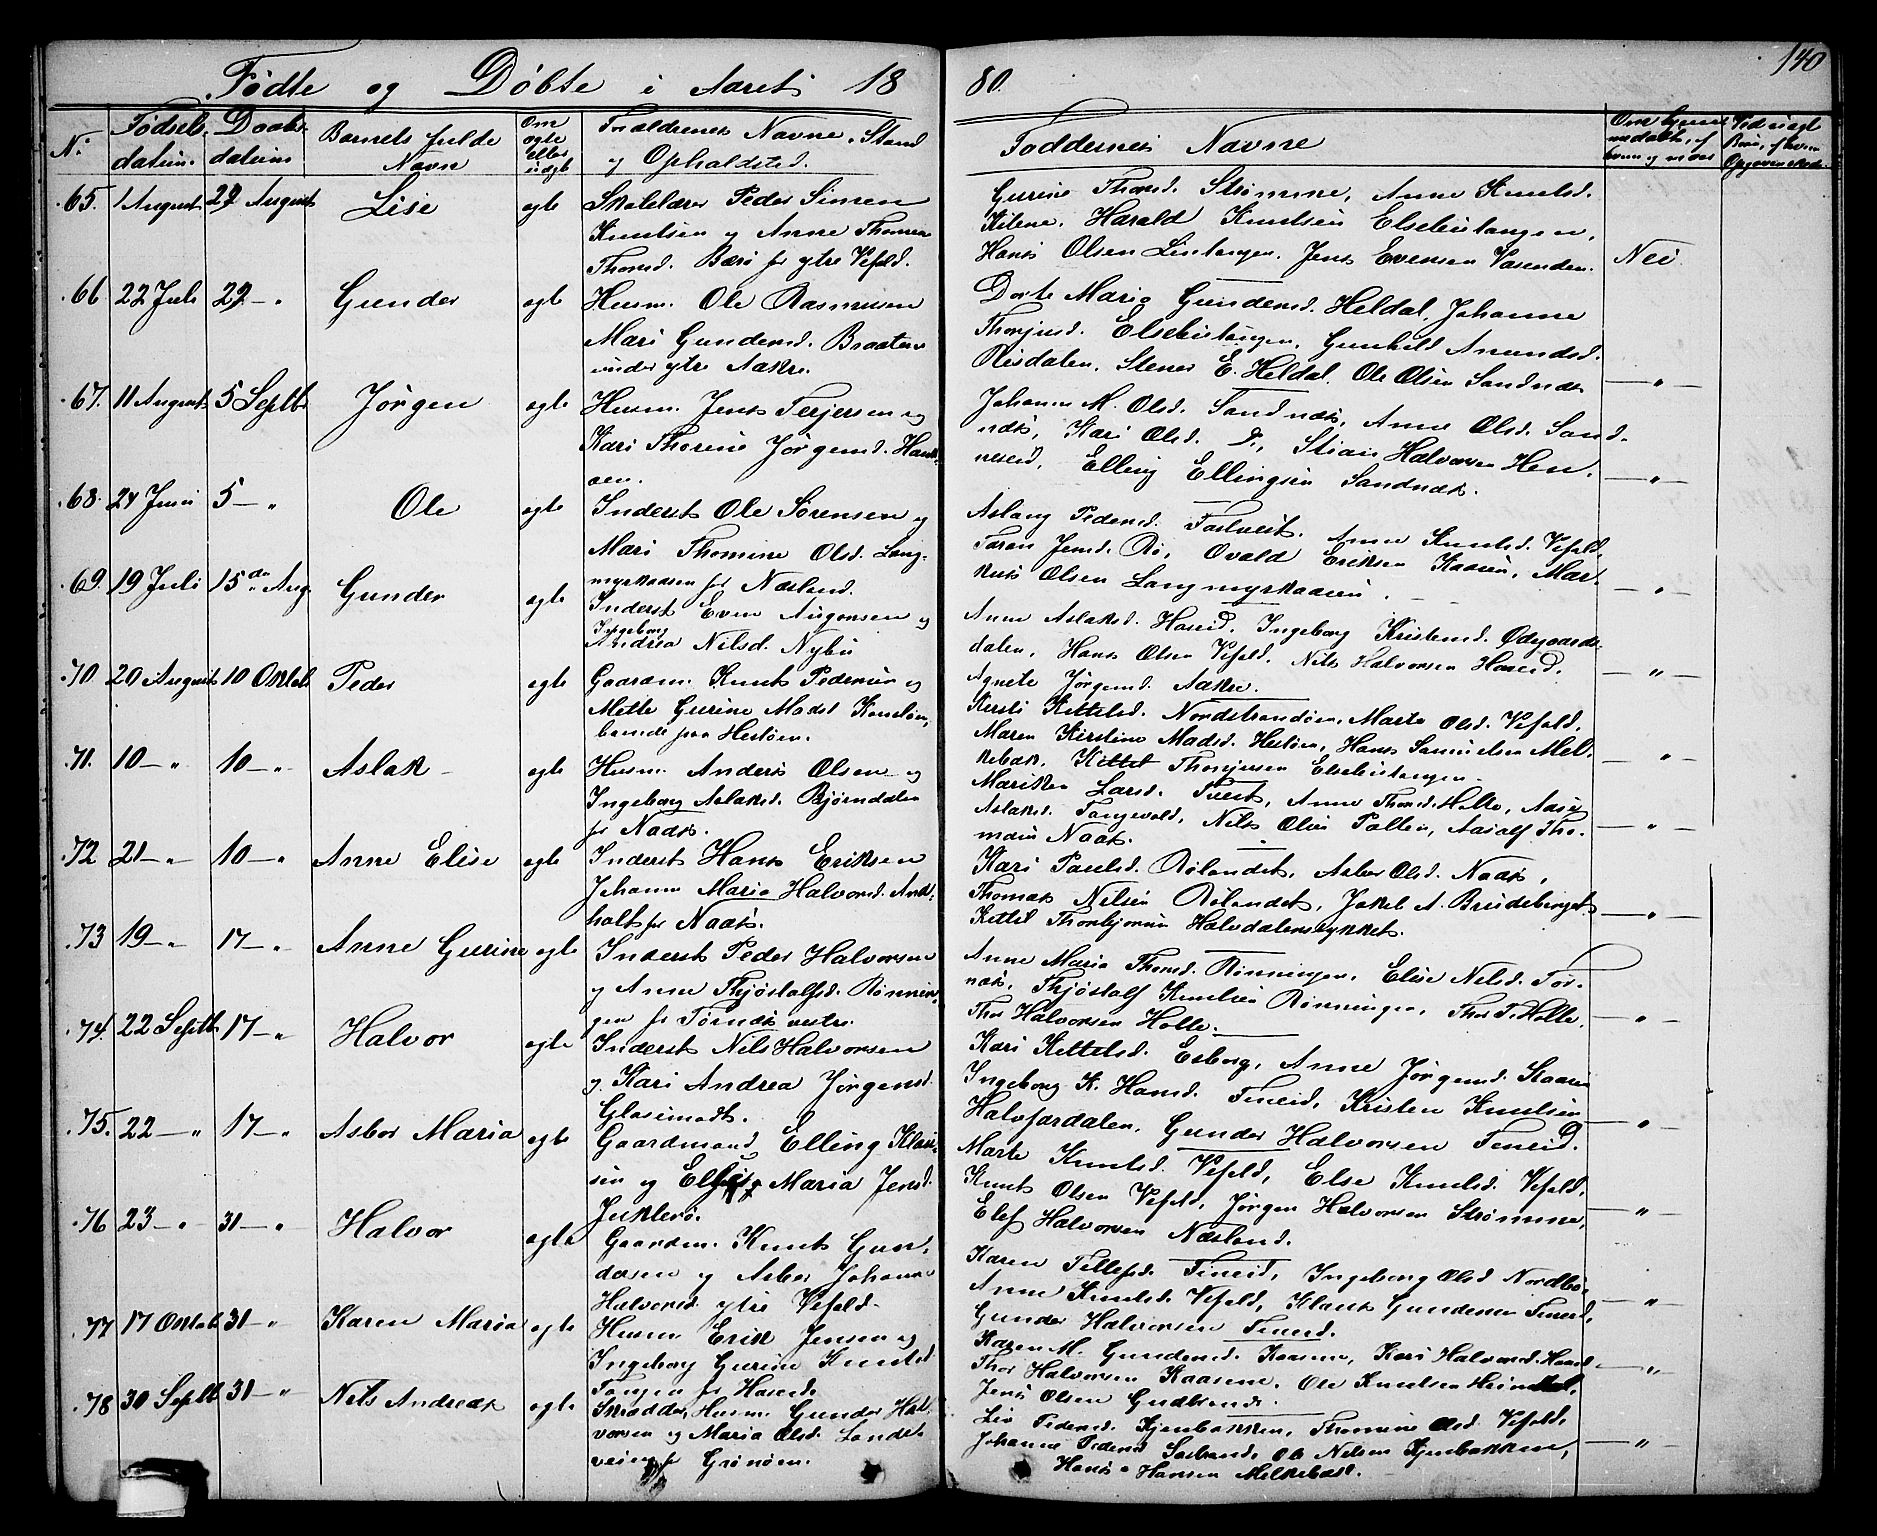 140
Födte og Döbte i Aaret 18 80.
No
Födsels datum.
Daabs datum
Barnets fulde Navn
Om ægte eller uægte
Forældrenes Navne, Stand og Opholdsted.
Faddernes Navne
65. 1 August 29 August Lise ægte Skolelærer Peder Simen
Knudsen og Anne Thomine
Thomsd. Bærö fr ytre Vefald.
Gurine Thomsd. Strömme, Anne Knudsd.
Kilene, Harald Knudsen Elsebutangen,
Hans Olsen Lintangen, Jens Evensen Vasenden. Nei.
66 22 Juli 29 — " Gunder ægte Husm. Ole Rasmusen
Mari Gundersd. Braaten
under ytre Aakre.
Dorte Maria Gundersd. Heldal, Johanne
Thorjusd. Elsebutangen, Gunhild Anundsd.
Risdalen, Stener E. Heldal, Ole Olsen Sandnæs — " —
67. 11 August 5 Septbr Jörgen ægte Husm. Jens Terjersen og
Kari Thorine Jörgensd. Hauk-
aen.
Johanne M. Olsd. Sandnæs, Anne Olsd. Sand-
næs, Kari Olsd. D., Stian Halvorsen Hen-
neseid, Elling Ellingsen Sandnæs. — " —
68. 24 Juni 5 — " Ole ægte Inderst Ole Sörensen og
Mari Thomine Olsd. Lang-
myrkaasen fr Næsland.
Aslaug Pedersd. Tostveit, Anne Knudsd. Vefald,
Taran Jensd. Rö, Ovald Eriksen Kaasen, Mar-
kus Olsen Langmyrkaasen. — " —
69. 19 Juli 15de Aug. Gunder ægte Inderst Even Augonsen og
Ingeborg
Andrea Nilsd. Nybu
Anne Aslaksd. Haseid, Ingeborg Kristensd. Ödegaards-
dalen, Hans Olsen Vefald, Nils Halvorsen Haseid.
Agnete Jörgensd. Aakre. — " —
70. 20 August 10 Oktob. Peder ægte Gaardm. Knut Pedersen og
Mette Gurine Madsd
boende paa Hestöen.
Kersti Kittelsd. Nordstrandöen, Marte Olsd. Vefald,
Maren Kirstine Madsd. Hestöen, Hans Samuelsen Mel-
kebæk, Kittel Thorjersen Elsebutangen. — " —
71. 10 — " 10 — " Aslak ægte Husm. Anders Olsen og
Ingeborg Aslaksd. Björndalen
fr Naas.
Mariken Larsd. Tveit, Anne Thorsd. Holte, Aase
Aslaksd. Tangevald, Nils Olsen Pallen, Aasolf Tho-
masen Naas. — " —
72 21 — " 10 — " Anne Elise ægte Inderst Hans Eriksen
Johanne Maria Halvorsd.
holt fr Naas.
Kari Paulsd. Rölandet, Asbor Olsd. Naas,
Thomas Nilsen Rölandet, Jakel A. Brudeberget
Kittil Thorbjörnsen Halvdalensstykket. — " —
73 19 — " 17 — " Anne Gurine ægte Inderst Peder Halvorsen
og Anne Thjöstolfsd. Rönnin-
gen fr Törnæs vestre.
Anne Maria Thomsd. Rönningen, Elise Nilsd. Tör-
næs, Thjöstolf Knudsen Rönningen, Thor T. Holte,
Thor Halvorsen Holte. — " —
74. 22 Septb. 17 — " Halvor ægte Inderst Nils Halvorsen
og Kari Andrea Jörgensd.
Glosimodt.
Kari Kittelsd. Esborg, Anne Jörgensd. Kaasen
Ingeborg K. Hansd. Fineid, Kristen Knudsen
Halvfardalen, Gunder Halvorsen Fineid. — " —
75. 22 — " 17 — " Asbor Maria ægte Gaardmand Elling Klau-
sen og Else Maria Jensd.
Juklerö.
Marte Knudsd. Vefald, Else Knudsd. Vefald,
Knut Olsen Vefald, Jörgen Halvorsen Strömme,
Elef Halvorsen Næsland. — " —
76 23 — " 31 — " Halvor ægte Gaardm. Knut Gun-
dersen og Asbor Johanne
Halvorsd. ytre Vefald.
Karen Tellefsd. Fineid, Ingeborg Olsd. Nordbö,
Anne Knudsd. Vefald, Klaus Gundersen Fineid,
Gunder Halvorsen Fineid. — " —
77 17 Oktob 31 — " Karen Maria ægte Husm. Erik Jensen og
Ingeborg Gurine Knudsd
Tangen fr Haseid.
Karen M. Gundersd. Kaasene, Kari Halvorsd. Haseid
Thor Halvorsen Kaasene, Ole Knudsen Heimdal,
Jens Olsen Gudbrands. — " —
78 30 Septb 31 — " Nils Andreas ægte Skrædder, Husm. Gunder Hal-
vorsen og Maria Olsd. Lande-
veien fr Grönöen.
Liv Pedersd. Kjenbakken, Thomine Olsd. Vefald,
Johanne Pedersd. Ole Nilsen Kjenbakken,
Hans Hansen Melkebæk. — " —